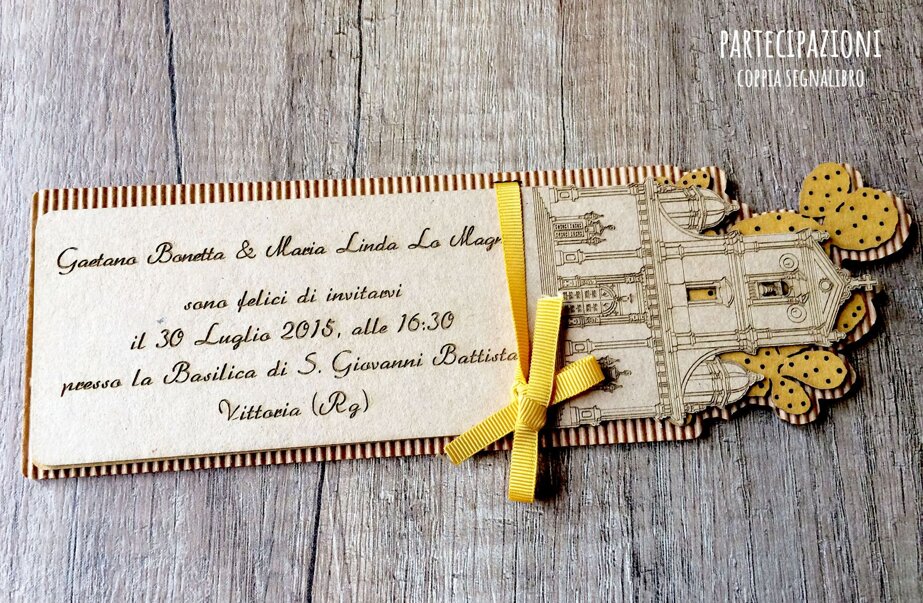 PARTECIPAZIONI
COPPIA SEGNALIBRO
Gaetano Bonetta & Maria Linda Lo
sono felici di invitarvi
il 30 Luglio 2015, alle 16:30
presso la Basilica di S. Giovanni Battista
Vittoria (Rg)